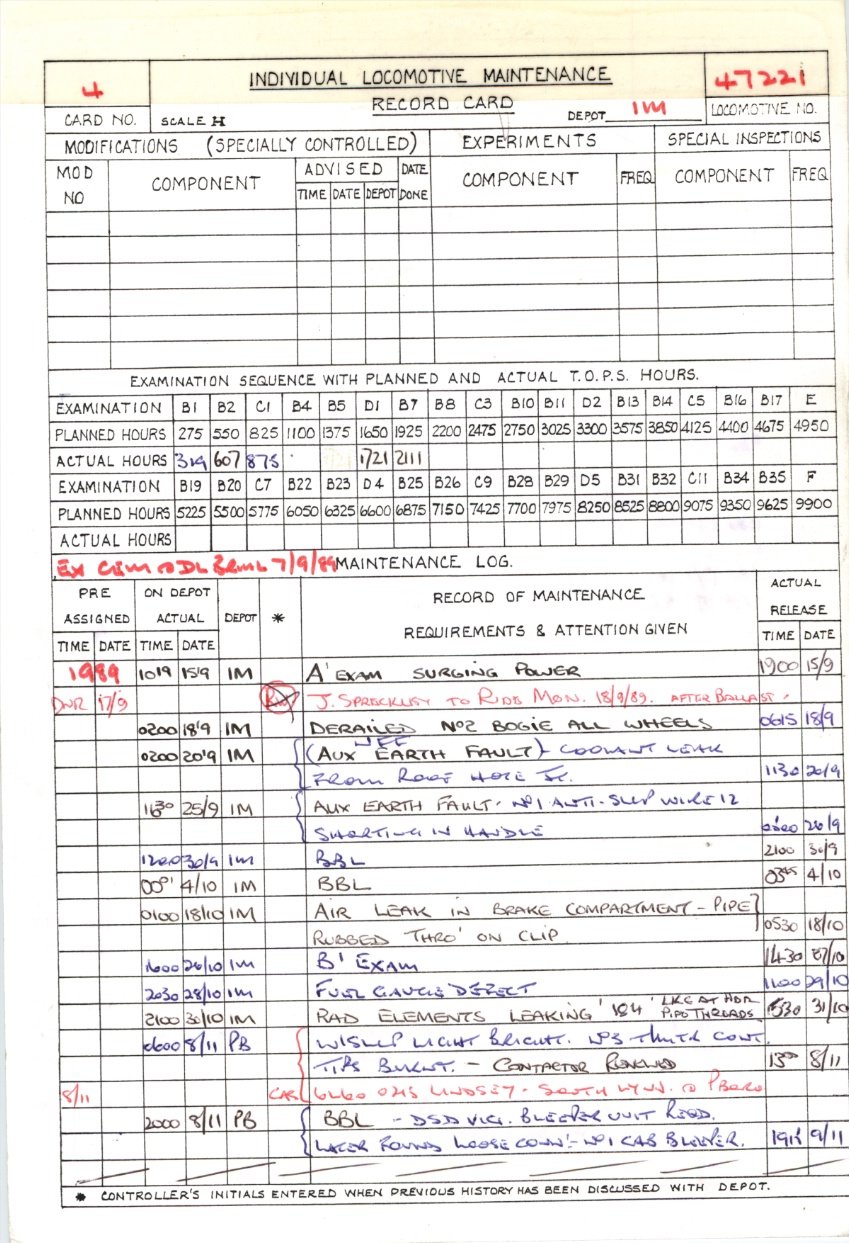 4 INDIVIDUAL LOCOMOTIVE MAINTENANCE 47221
CARD NO. SCALE H RECORD CARD DEPOT 1M LOCOMOTIVE NO.
MODIFICATIONS (SPECIALLY CONTROLLED) EXPERIMENTS SPECIAL INSPECTIONS
MOD NO COMPONENT ADVISED DATE DONE COMPONENT FREQ COMPONENT FREQ
TIME DATE DEPOT
EXAMINATION SEQUENCE WITH PLANNED AND ACTUAL T.O.P.S. HOURS.
EXAMINATION B1 B2 C1 B4 B5 D1 B7 B8 C3 B10 B11 D2 B13 B14 C5 B16 B17 E
PLANNED HOURS 275 550 825 1100 1375 1650 1925 2200 2475 2750 3025 3300 3575 3850 4125 4400 4675 4950
ACTUAL HOURS 319 607 875 1721 2111
EXAMINATION B19 B20 C7 B22 B23 D4 B25 B26 C9 B28 B29 D5 B31 B32 C11 B34 B35 F
PLANNED HOURS 5225 5500 5775 6050 6325 6600 6875 7150 7425 7700 7975 8250 8525 8800 9075 9350 9625 9900
ACTUAL HOURS
Ex 7/9/89 MAINTENANCE LOG.
PRE ASSIGNED ON DEPOT ACTUAL DEPOT * RECORD OF MAINTENANCE ACTUAL RELEASE
REQUIREMENTS & ATTENTION GIVEN
TIME DATE TIME DATE TIME DATE
1989 1019 15/9 1M 'A' EXAM SURGING POWER 1900 15/9
17/9 TO RIDE MON. 18/9/89. AFTER BALLAST.
0200 18/9 1M DERAILED No2 BOGIE ALL WHEELS 0615 18/9
0200 20/9 1M (AUX EARTH FAULT) NFF - COOLANT LEAK
FROM ROOF HOSE 1130 20/9
1630 25/9 1M AUX EARTH FAULT. No1 ANTI-SLIP WIRE 12
SHORTING IN HANDLE 26/9
1200 30/9 1M BBL 2100 30/9
4/10 1M BBL 0345 4/10
0100 18/10 1M AIR LEAK IN BRAKE COMPARTMENT - PIPE
RUBBED THRO' ON CLIP 0530 18/10
1600 26/10 1M 'B' EXAM 1430 27/10
2030 28/10 1M FUEL GAUGE DEFECT 1100 29/10
2100 30/10 1M RAD ELEMENTS LEAKING PIPE THREADS 1530 31/10
0600 8/11 PB W/SLIP LIGHT BRIGHT. No3 CONT
TIPS BURNT. - CONTACTOR RENEWED 13°° 8/11
8/11 6L60 0215 LINDSEY - SOUTH LYNN
2000 8/11 PB BBL - DSD BLEEPER UNIT
LATER FOUND LOOSE CONN - No1 CAB BLEEPER. 9/11
* CONTROLLER'S INITIALS ENTERED WHEN PREVIOUS HISTORY HAS BEEN DISCUSSED WITH DEPOT.